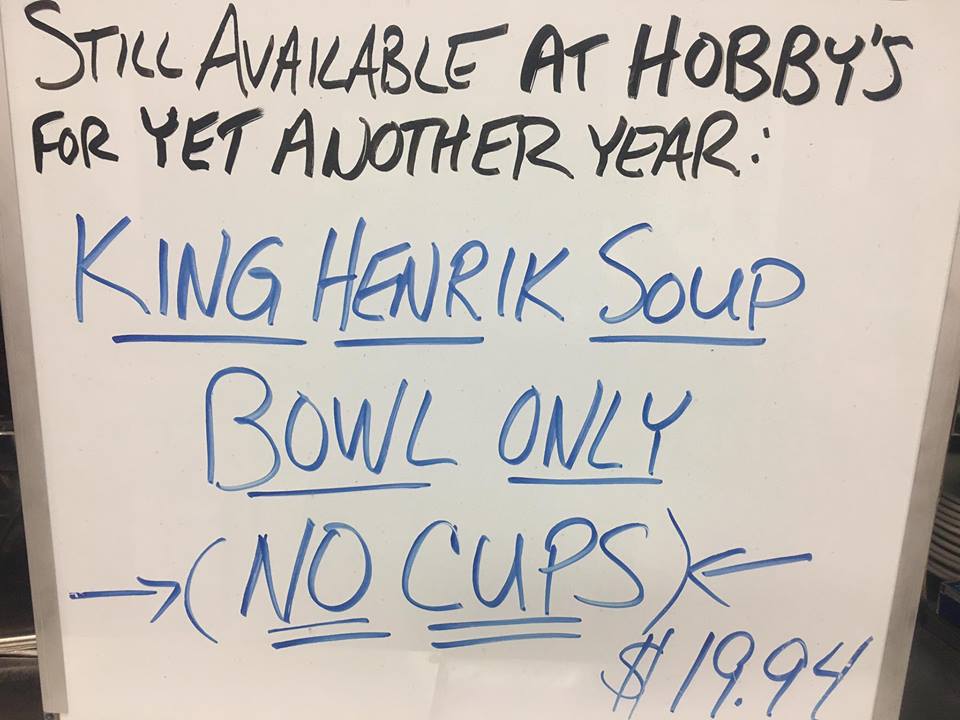 STILL AVAILABLE AT HOBBY'S
FOR YET ANOTHER YEAR:
KING HENRIK SOUP
BOWL ONLY
→(NO CUPS)←
$19.94